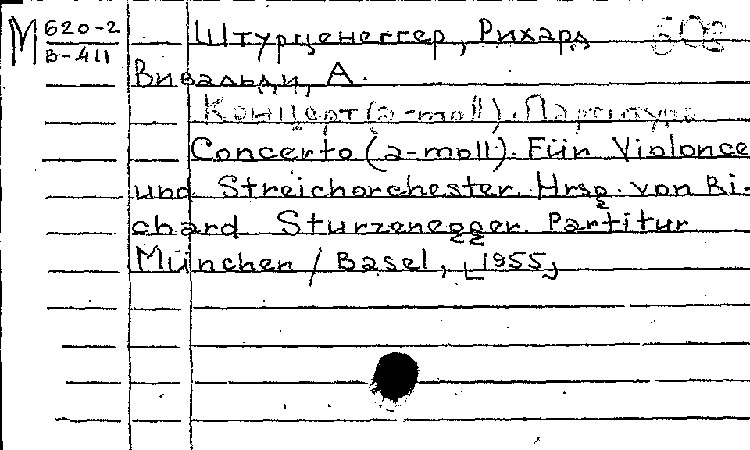 М 620-2
В-411
Штурценеггер, Рихард
Вивальди, А.
Концерт (a-moll). Партитура
Concerto (a-moll). Für Violonce
und Streichorchester. Hrsg. von Ri-
chard Sturzenegger. Partitur
München / Basel, [1955]